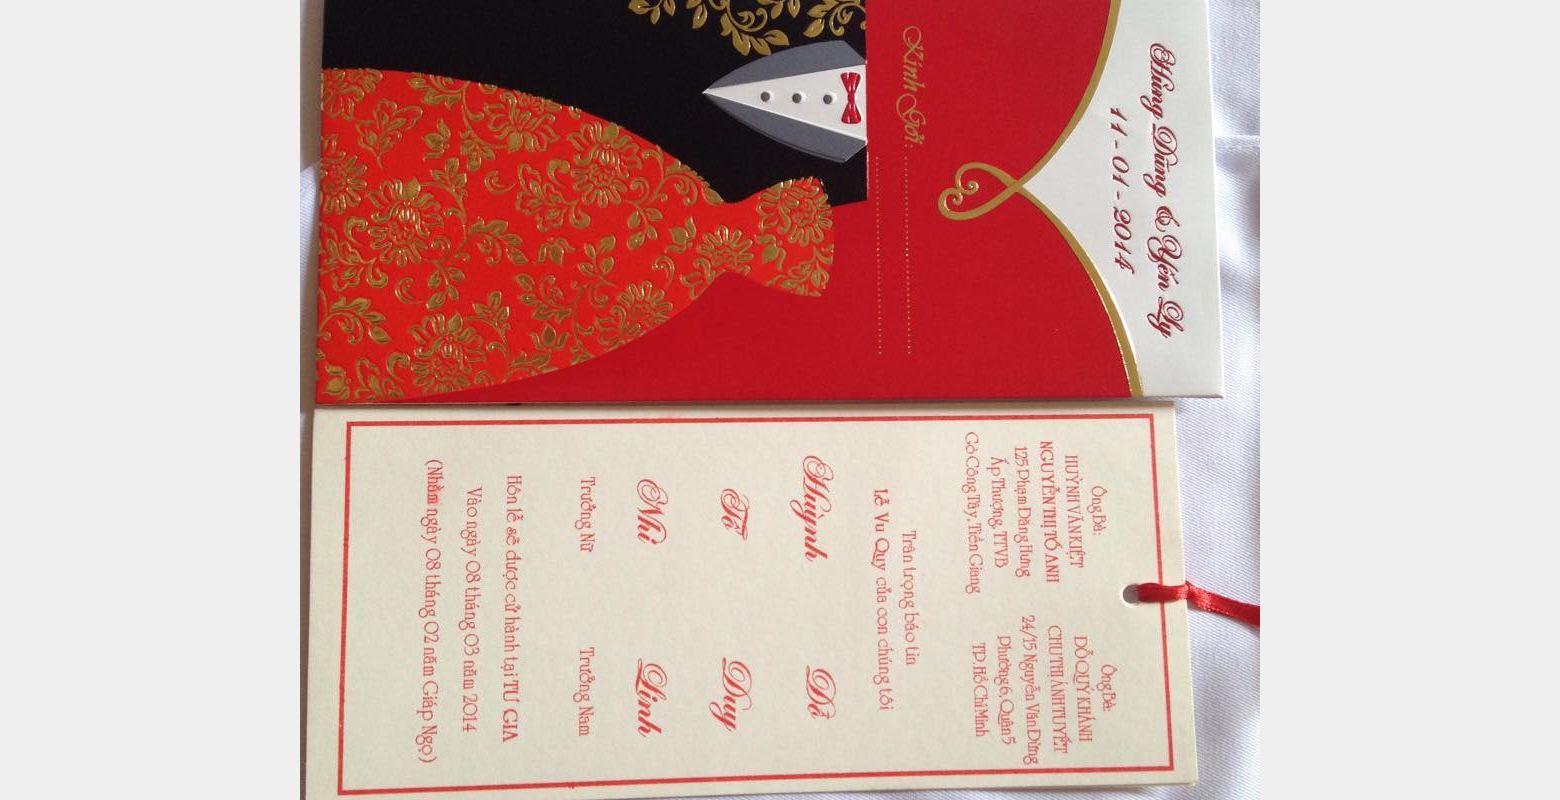 Hùng Dũng & Yến Ly
11 - 01 - 2014
Kính Gởi:
Ông Bà:
HUỲNH VĂN KIỆT
NGUYỄN THỊ TỐ ANH
125 Phạm Đăng Hưng
Ấp Thượng, TTVB
Gò Công Tây, Tiền Giang
Ông Bà:
ĐỖ QUÝ KHÁNH
CHU THỊ ÁNH TUYẾT
24/15 Nguyễn Văn Đừng
Phường 6, Quận 5
TP. Hồ Chí Minh
Trân trọng báo tin
Lễ Vu Quy của con chúng tôi
Huỳnh Đỗ
Tố Duy
Nhi Linh
Trưởng Nữ Trưởng Nam
Hôn lễ sẽ được cử hành tại TƯ GIA
Vào ngày 08 tháng 03 năm 2014
(Nhằm ngày 08 tháng 02 năm Giáp Ngọ)